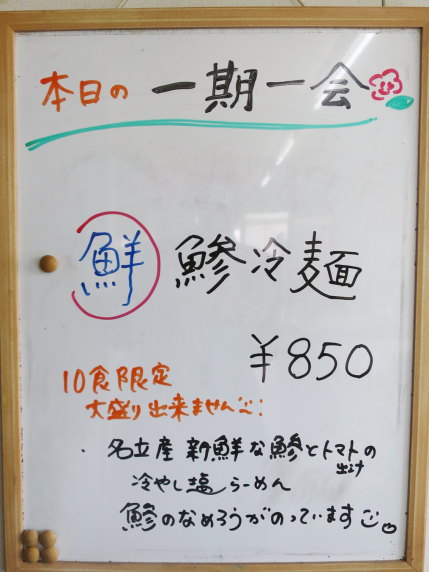 本日の 一期一会
鮮 鯵冷麺
¥850
10食限定
大盛り出来ません
・名立産 新鮮な鯵とトマトの
出汁
冷やし塩らーめん
鯵のなめろうがのっています